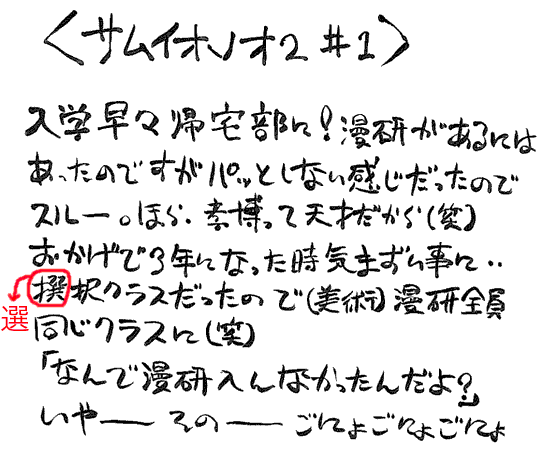 〈サムイオノオ2 #1〉
入学早々帰宅部に!漫研があるには
あったのですがパッとしない感じだったので
スルー。ほら、素博って天才だから(笑)
おかげで3年になった時気まずい事に‥
撰択クラスだったので(美術)漫研全員
選
同じクラスに(笑)
「なんで漫研入んなかったんだよ?」
いやー その― ごにょごにょごにょ